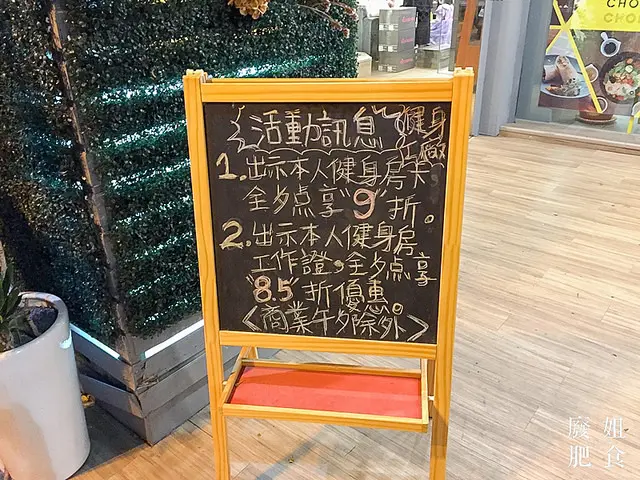 活動訊息 健身
工廠
1.出示本人健身房卡
全夕点享"9"折。
2.出示本人健身房
工作證,全夕点享
"8.5"折優惠。
<商業午夕除外>
CHO
CHO
廢姐
肥食